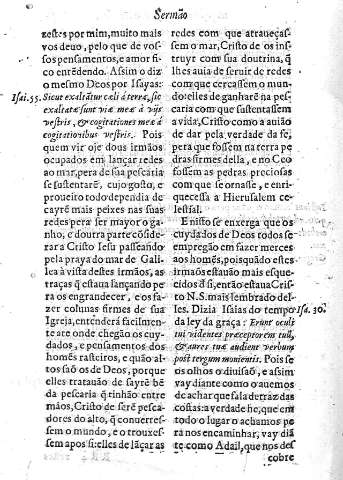 Sermão
zestes por mim, muito mais
vos deuo, pelo que de vos-
sos pensamentos, e amor fi-
co entẽdendo. Assim o diz
o mesmo Deos por Isayas:
Isai. 55. Sicut exaltãtur cæli á terra, sic
exaltatæ sunt viæ meæ á vijs
vestris, & cogitationes meæ á
cogitationibus vestris. Pois
quem vir oje dous irmãos
ocupados em lançar redes
ao mar, pera de sua pescaria
se sustentarẽ, cujo gosto, e
proueito todo dependia de
cayrẽ mais peixes nas suas
redes pera ser mayor o ga-
nho, e doutra parte cõside-
rar a Cristo Iesu passeando
pela praya do mar de Gali-
lea à vista destes irmãos, as
traças q̃ estaua lançando pe-
ra os engrandecer, e os fa-
zer colunas firmes de sua
Igreja, entenderá facilmen-
te ate onde chegão os cuy-
dados, e pensamentos dos
homẽs rasteiros, e quão al-
tos saõ os de Deos, porque
elles tratauão de sayrẽ bẽ
da pescaria q̃ tinhão entre
mãos, Cristo de serẽ pesca-
dores do alto, q̃ conuerres-
sem o mundo, e o trouxes-
sem apos si: elles de lãçar as
redes com que atraueças-
sem o mar, Cristo de os ins-
truyr com sua doutrina, q̃
lhes auia de seruir de redes
com que cercassem o mun-
do: elles de ganharẽ na pes-
caria com que sustentassem
a vida, Cristo como a auião
de dar pela verdade da fé,
pera que fossem na terra pe
dras firmes della, e no Ceo
fossem as pedras preciosas
com que se ornasse, e enri-
quecessa a Hierusalem ce-
lestial.
E nisto se enxerga que os
cuydados de Deos todos se
empregão em fazer merces
aos homẽs, pois quãdo estes
irmãos estauão mais esque-
cidos de si, então estaua Cris-
to N. S. mais lembrado del-
les. Dizia Isaias do tempo Isa. 30.
da ley da graça: Erunt oculi
tui videntes præceptorem tuũ,
& aures tuæ audient verbum
post tergum monientis. Pois se
os olhos o diuisaõ, e assim
vay diante como o auemos
de achar que fala detraz das
costas: a verdade he, que em
todo o lugar o achamos pe
ra nos encaminhar, vay diã
te como Adail, que nos des
cobre